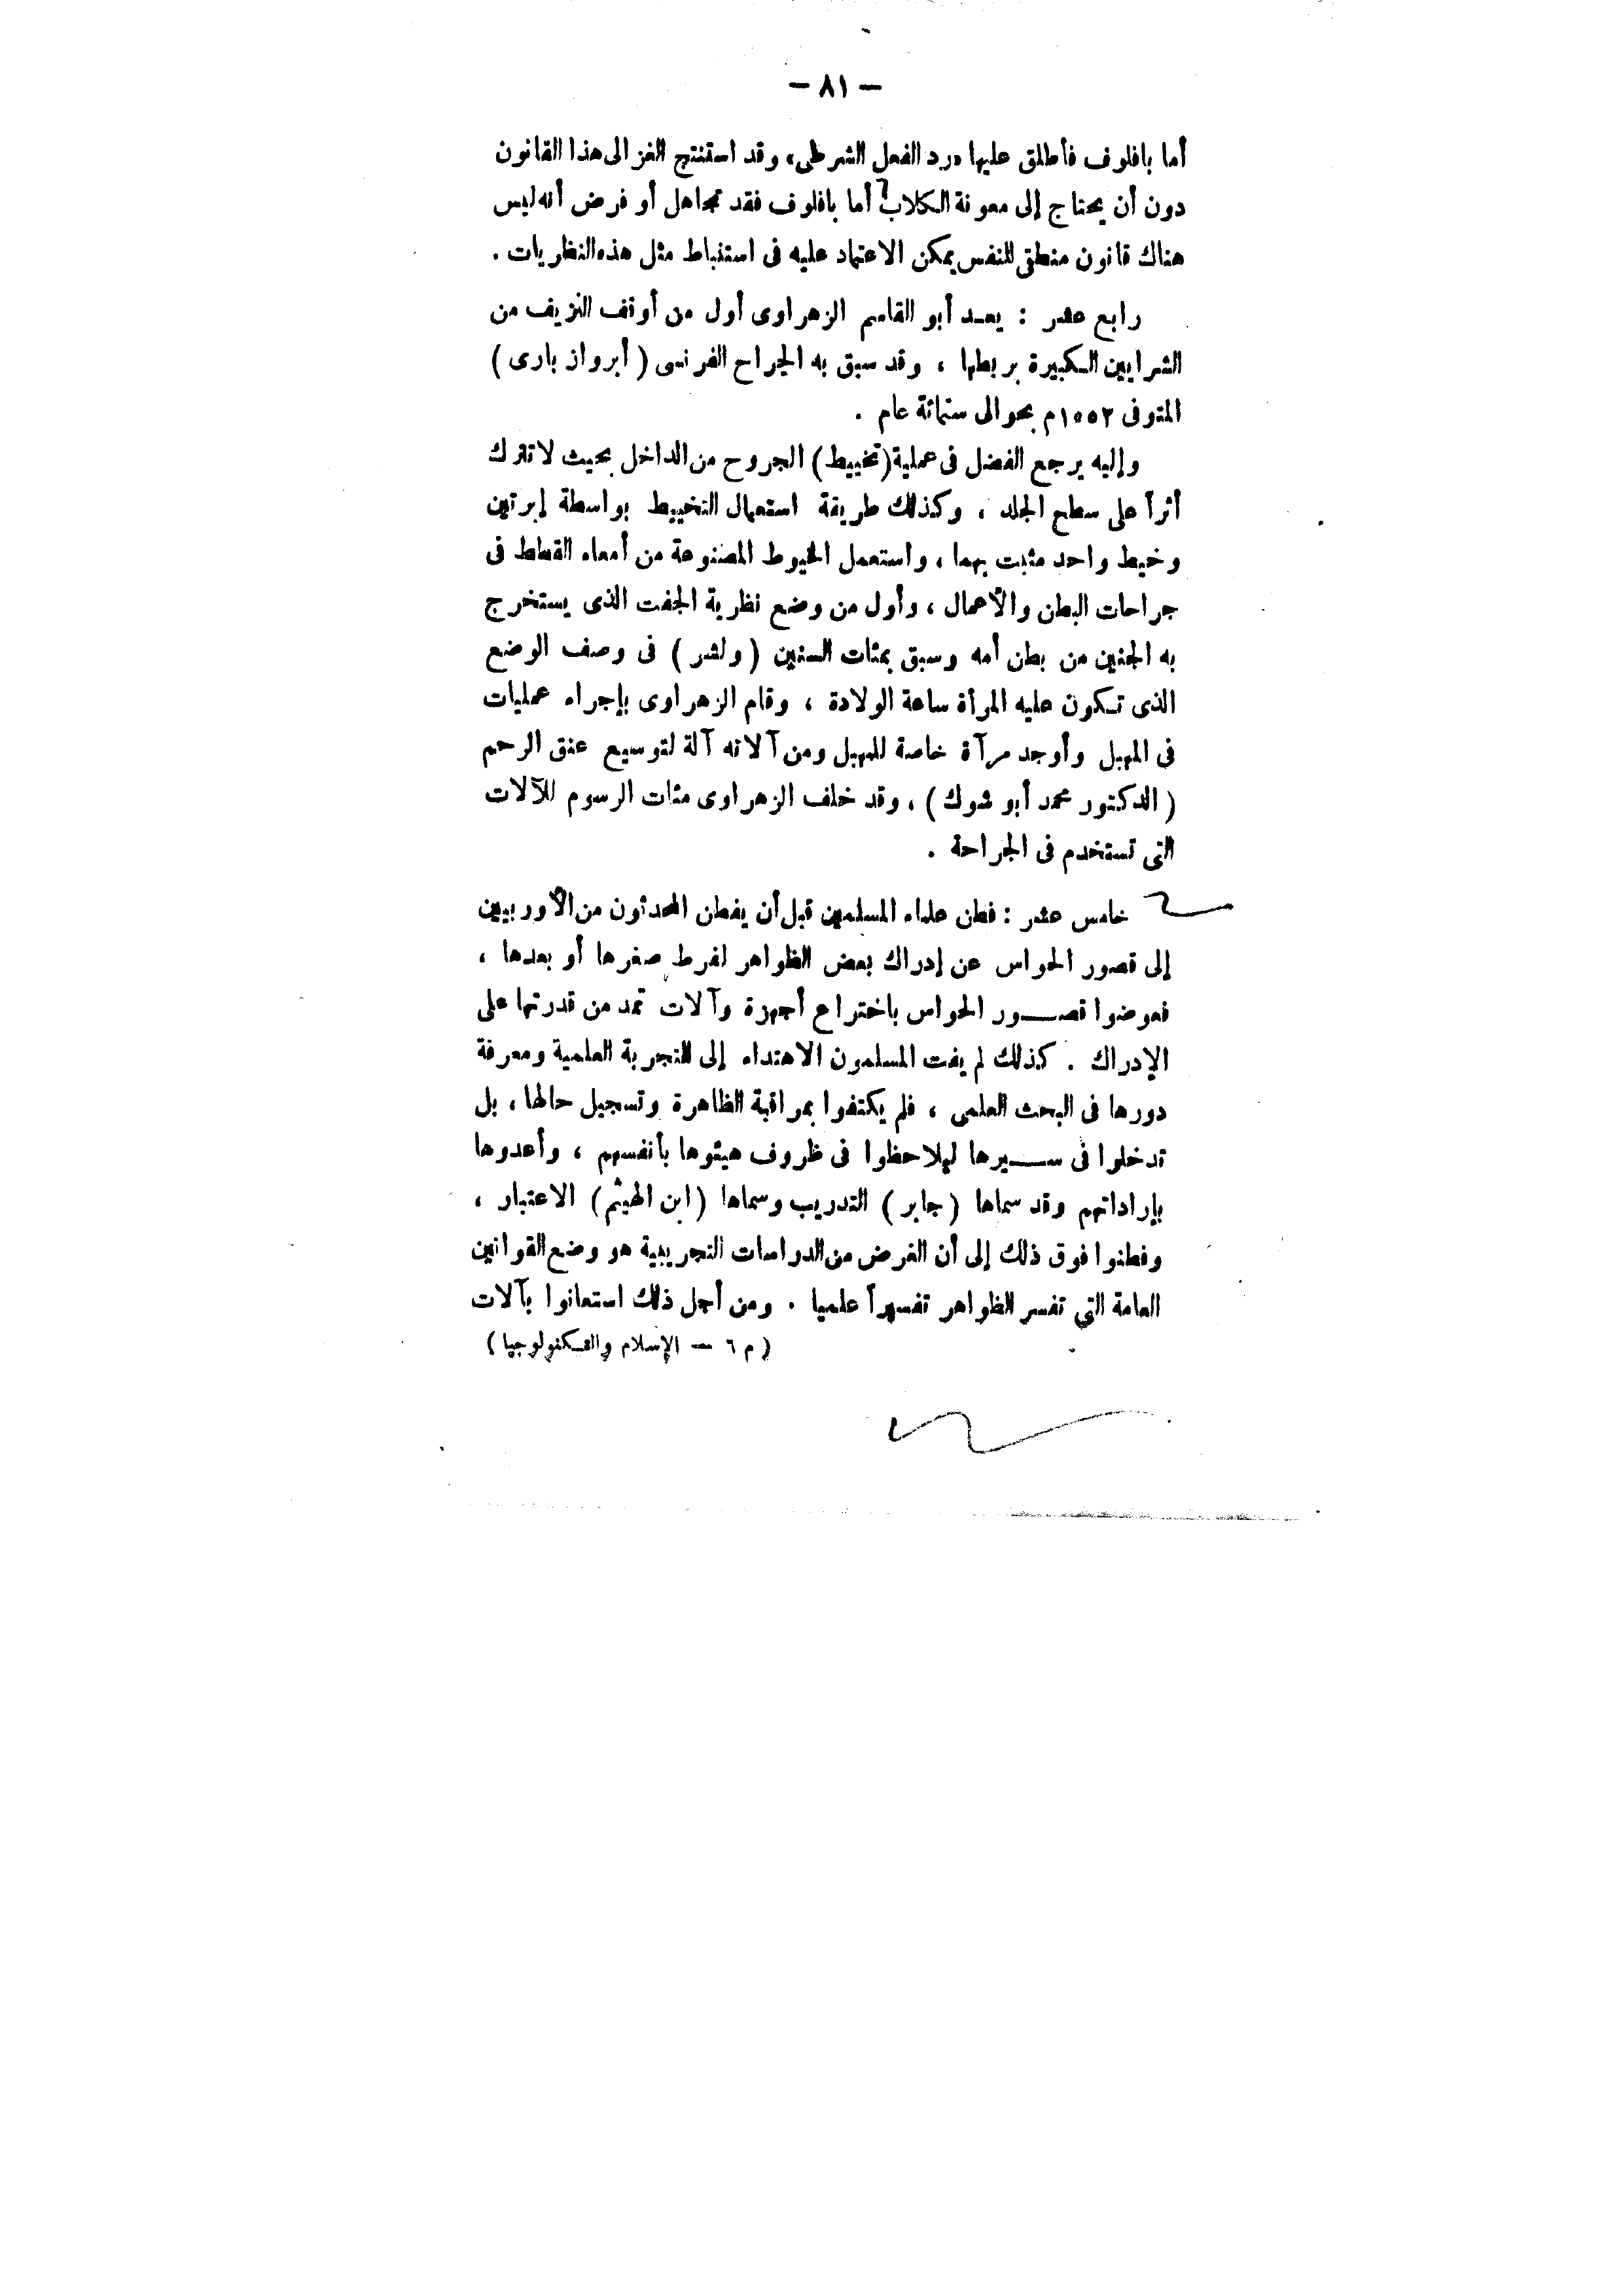 — ٨١ —
أما بافلوف فأطلق عليها «رد الفعل الشرطى، وقد استنتج الغزالى هذا القانون
دون أن يحتاج إلى معونة الكلاب أما بافلوف فقد تجاهل أو فرض أنه ليس
هناك قانون منطقى للنفس يمكن الاعتماد عليه فى استنباط مثل هذه النظريات .
رابع عشر : يعد أبو القاسم الزهراوى أول من أوقف النزيف من
الشرايين الكبيرة بربطها ، وقد سبق به الجراح الفرنسى ( أبرواز بارى )
المتوفى ١٥٥٢م بحوالى ستمائة عام .
وإليه يرجع الفضل فى عملية (تخييط) الجروح من الداخل بحيث لا تترك
أثراً على سطح الجلد ، وكذلك طريقة استعمال التخييط بواسطة إبرتين
وخيط واحد مثبت بهما ، واستعمل الخيوط المصنوعة من أمعاء القطط فى
جراحات البطن والأعمال ، وأول من وضع نظرية الجفت الذى يستخرج
به الجنين من بطن أمه وسبق بمئات السنين ( ولشر ) فى وصف الوضع
الذى تكون عليه المرأة ساعة الولادة ، وقام الزهراوى بإجراء عمليات
فى المهبل وأوجد مرآة خاصة للمهبل ومن آلاته آلة لتوسيع عنق الرحم
( الدكتور محمد أبو شوك ) ، وقد خلف الزهراوى مئات الرسوم للآلات
التى تستخدم فى الجراحة .
خامس عشر : فطن علماء المسلمين قبل أن يفطن المحدثون من الأوربيين
إلى قصور الحواس عن إدراك بعض الظواهر لفرط صغرها أو بعدها ،
فعوضوا قصور الحواس باختراع أجهزة وآلات تمد من قدرتها على
الإدراك . كذلك لم يفت المسلمون الاهتداء إلى التجربة العلمية ومعرفة
دورها فى البحث العلمى ، فلم يكتفوا بمراقبة الظاهرة وتسجيل حالها ، بل
تدخلوا فى سيرها ليلاحظوا فى ظروف هيئوها بأنفسهم ، وأعدوها
بإراداتهم وقد سماها ( جابر ) التدريب وسماها ( ابن الهيثم ) الاعتبار ،
وفطنوا فوق ذلك إلى أن الغرض من الدراسات التجريبية هو وضع القوانين
العامة التي تفسر الظواهر تفسيراً علميا . ومن أجل ذلك استعانوا بآلات
( م ٦ — الإسلام والتكنولوجيا )